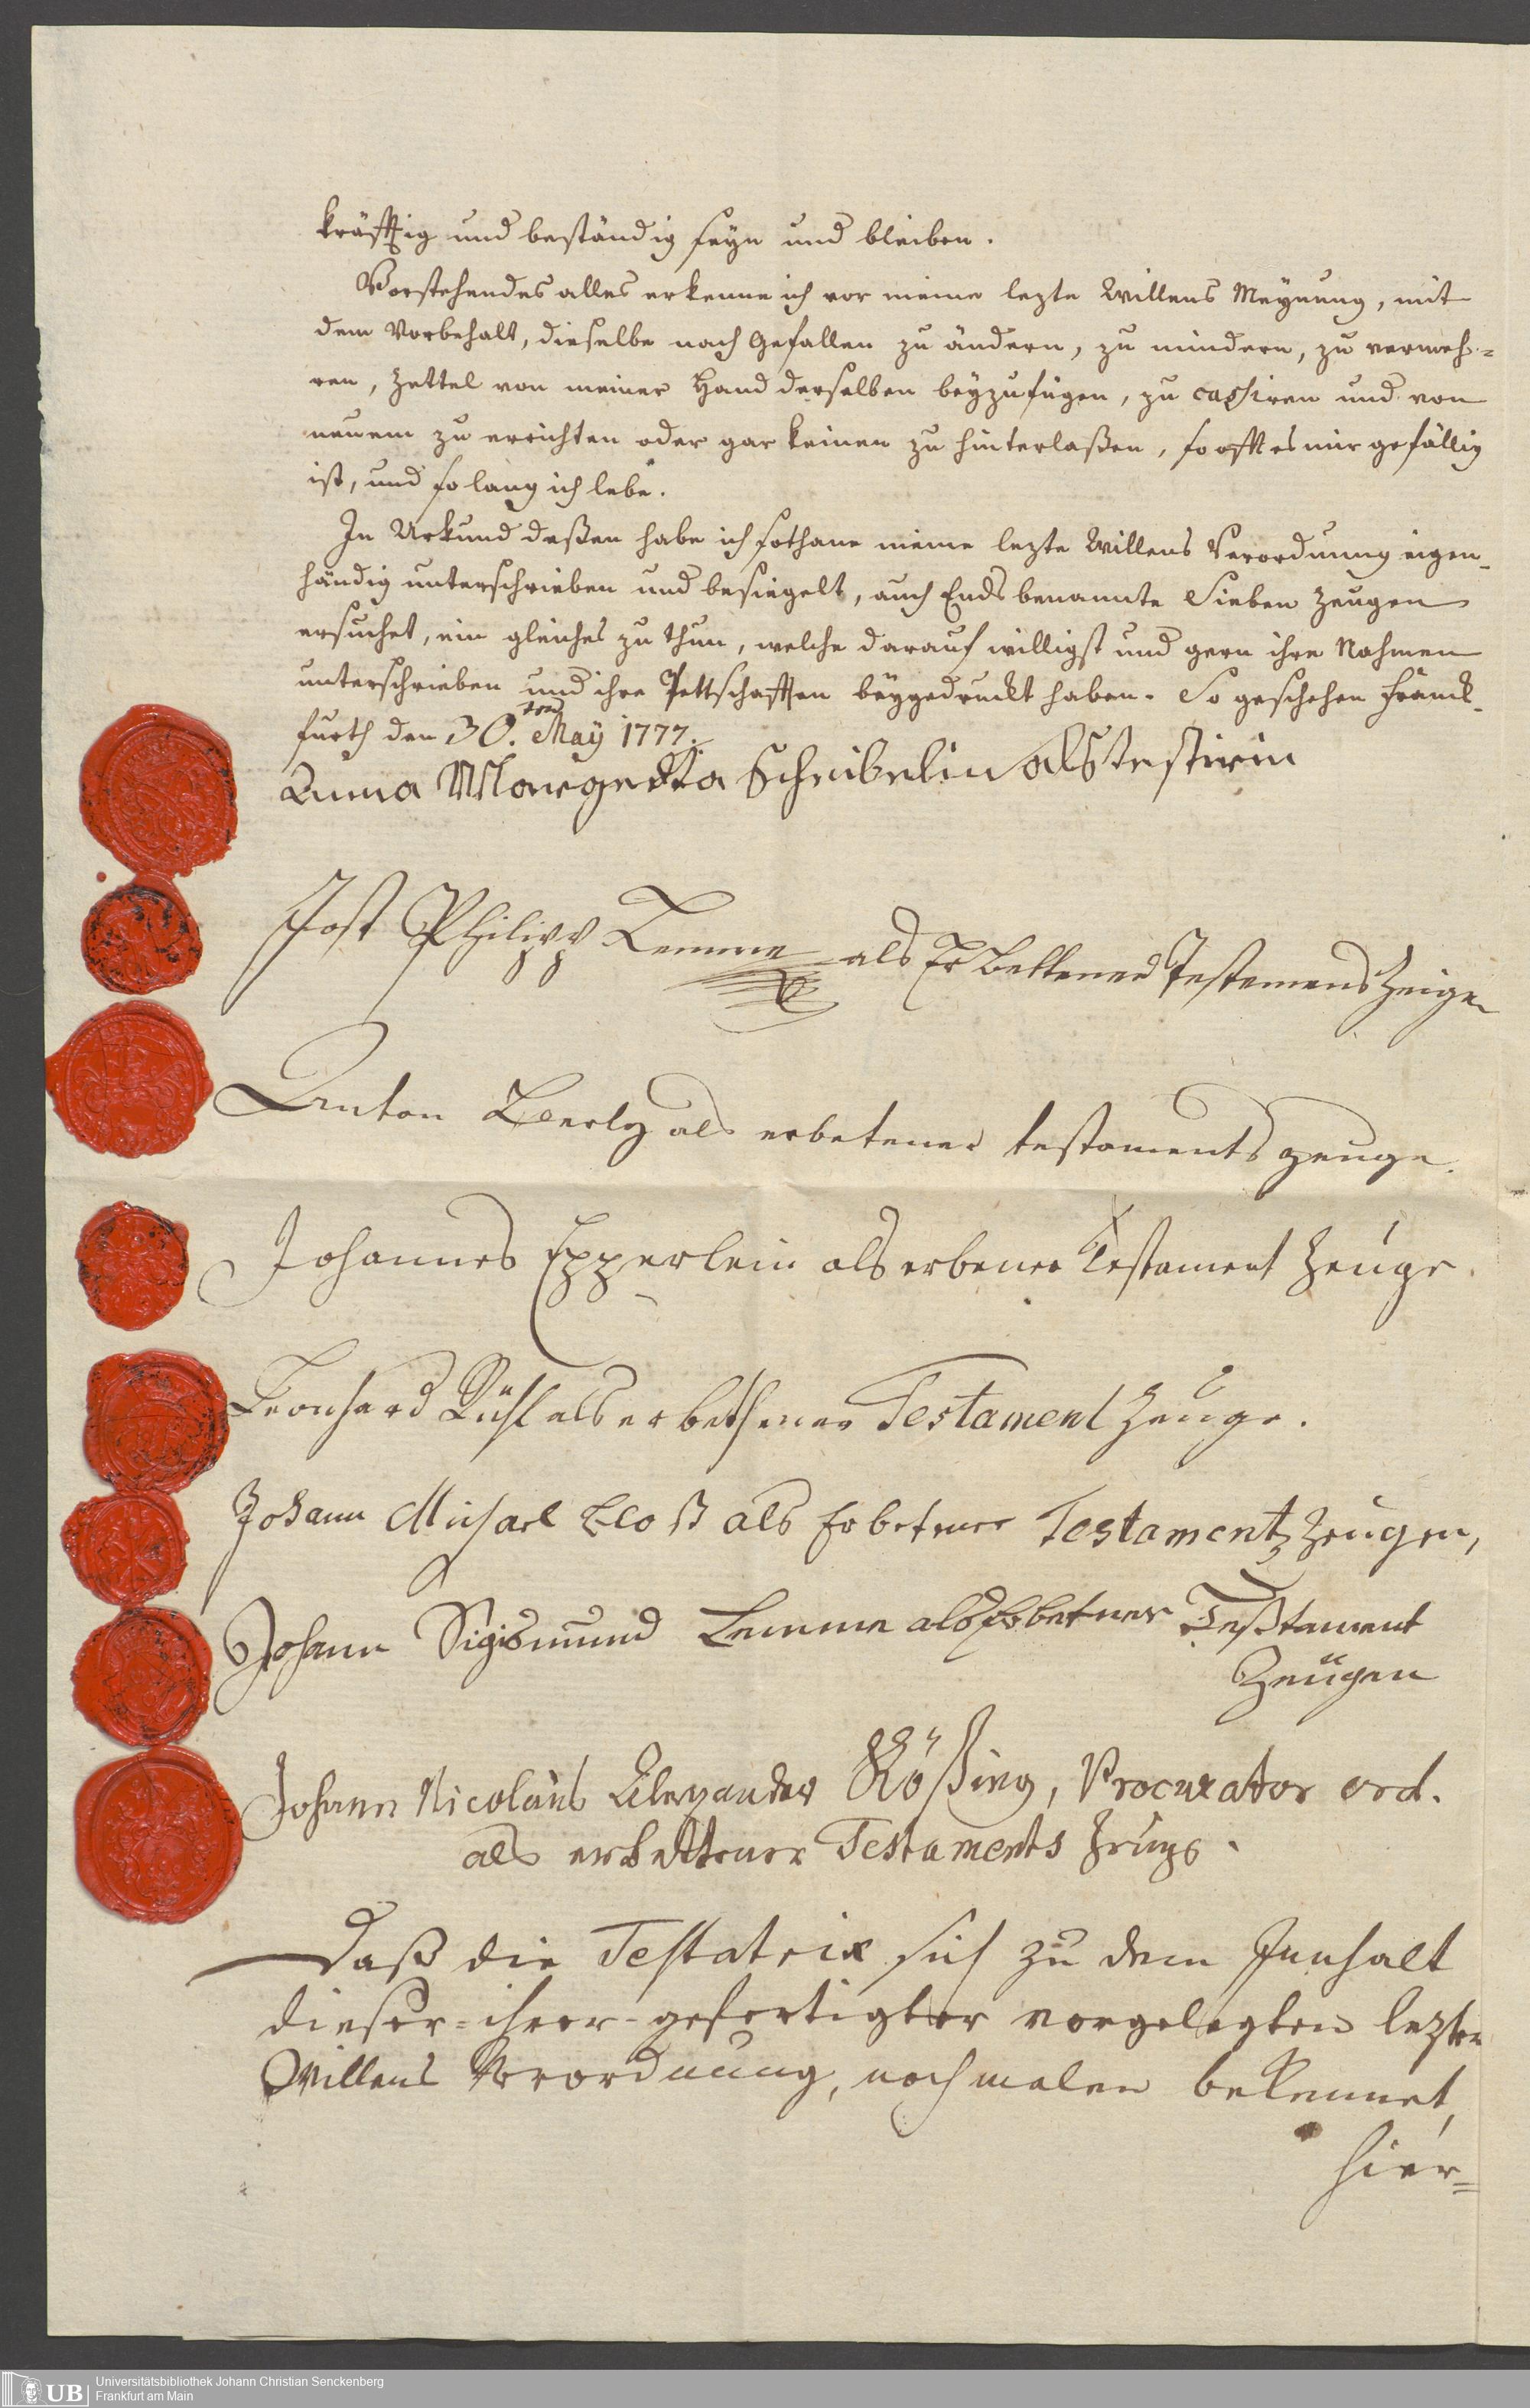 kräfftig und beständig seyn und bleiben.
Vorstehendes alles erkenne ich vor meine lezte Willens Meynung, mit
dem Vorbehalt, dieselbe nach Gefallen zu ändern, zu mindern, zu vermeh=
ren, Zettel von meiner Hand derselben beyzufügen, zu cassiren und von
neuem zu errichten oder gar keinen zu hinterlaßen, so offt es mir gefällig
ist, und so lang ich lebe.
In Urkund deßen habe ich sothane meine lezte Willens Verordnung eigen-
händig unterschrieben und besiegelt, auch Ends benannte Sieben Zeugen
ersuchet, ein gleiches zu thun, welche darauf willigst und gern ihre Nahmen
unterschrieben und ihre Pettschafften beygedruckt haben. So geschehen Franck-
furth den 30.ten May 1777.
Anna Margretta Scheibelin als testirin
Jost Philipp Lemme als Er bettener Testemens Zeige
Anton Berly als erbetener testaments zeuge.
Johannes Epperlein als erbener Testament Zeuge.
Leonhard Rühl als erbethener Testament Zeuge.
Johann Michael Cloß als Erbetener Testamentz Zeugen,
Johann Sigismund Lemme als Erbetner Teßtament
Zeugen
Johann Nicolaus Alexander Rößing, Procurator ord.
als erbettener Testaments Zeuge.
Daß die Testatrix sich zu dem Innhalt
dieser=ihrer-gefertigter vorgelegten lezten
Willens Verordnung, nochmalen bekennet,
hier=
UB
Universitätsbibliothek Johann Christian Senckenberg
Frankfurt am Main